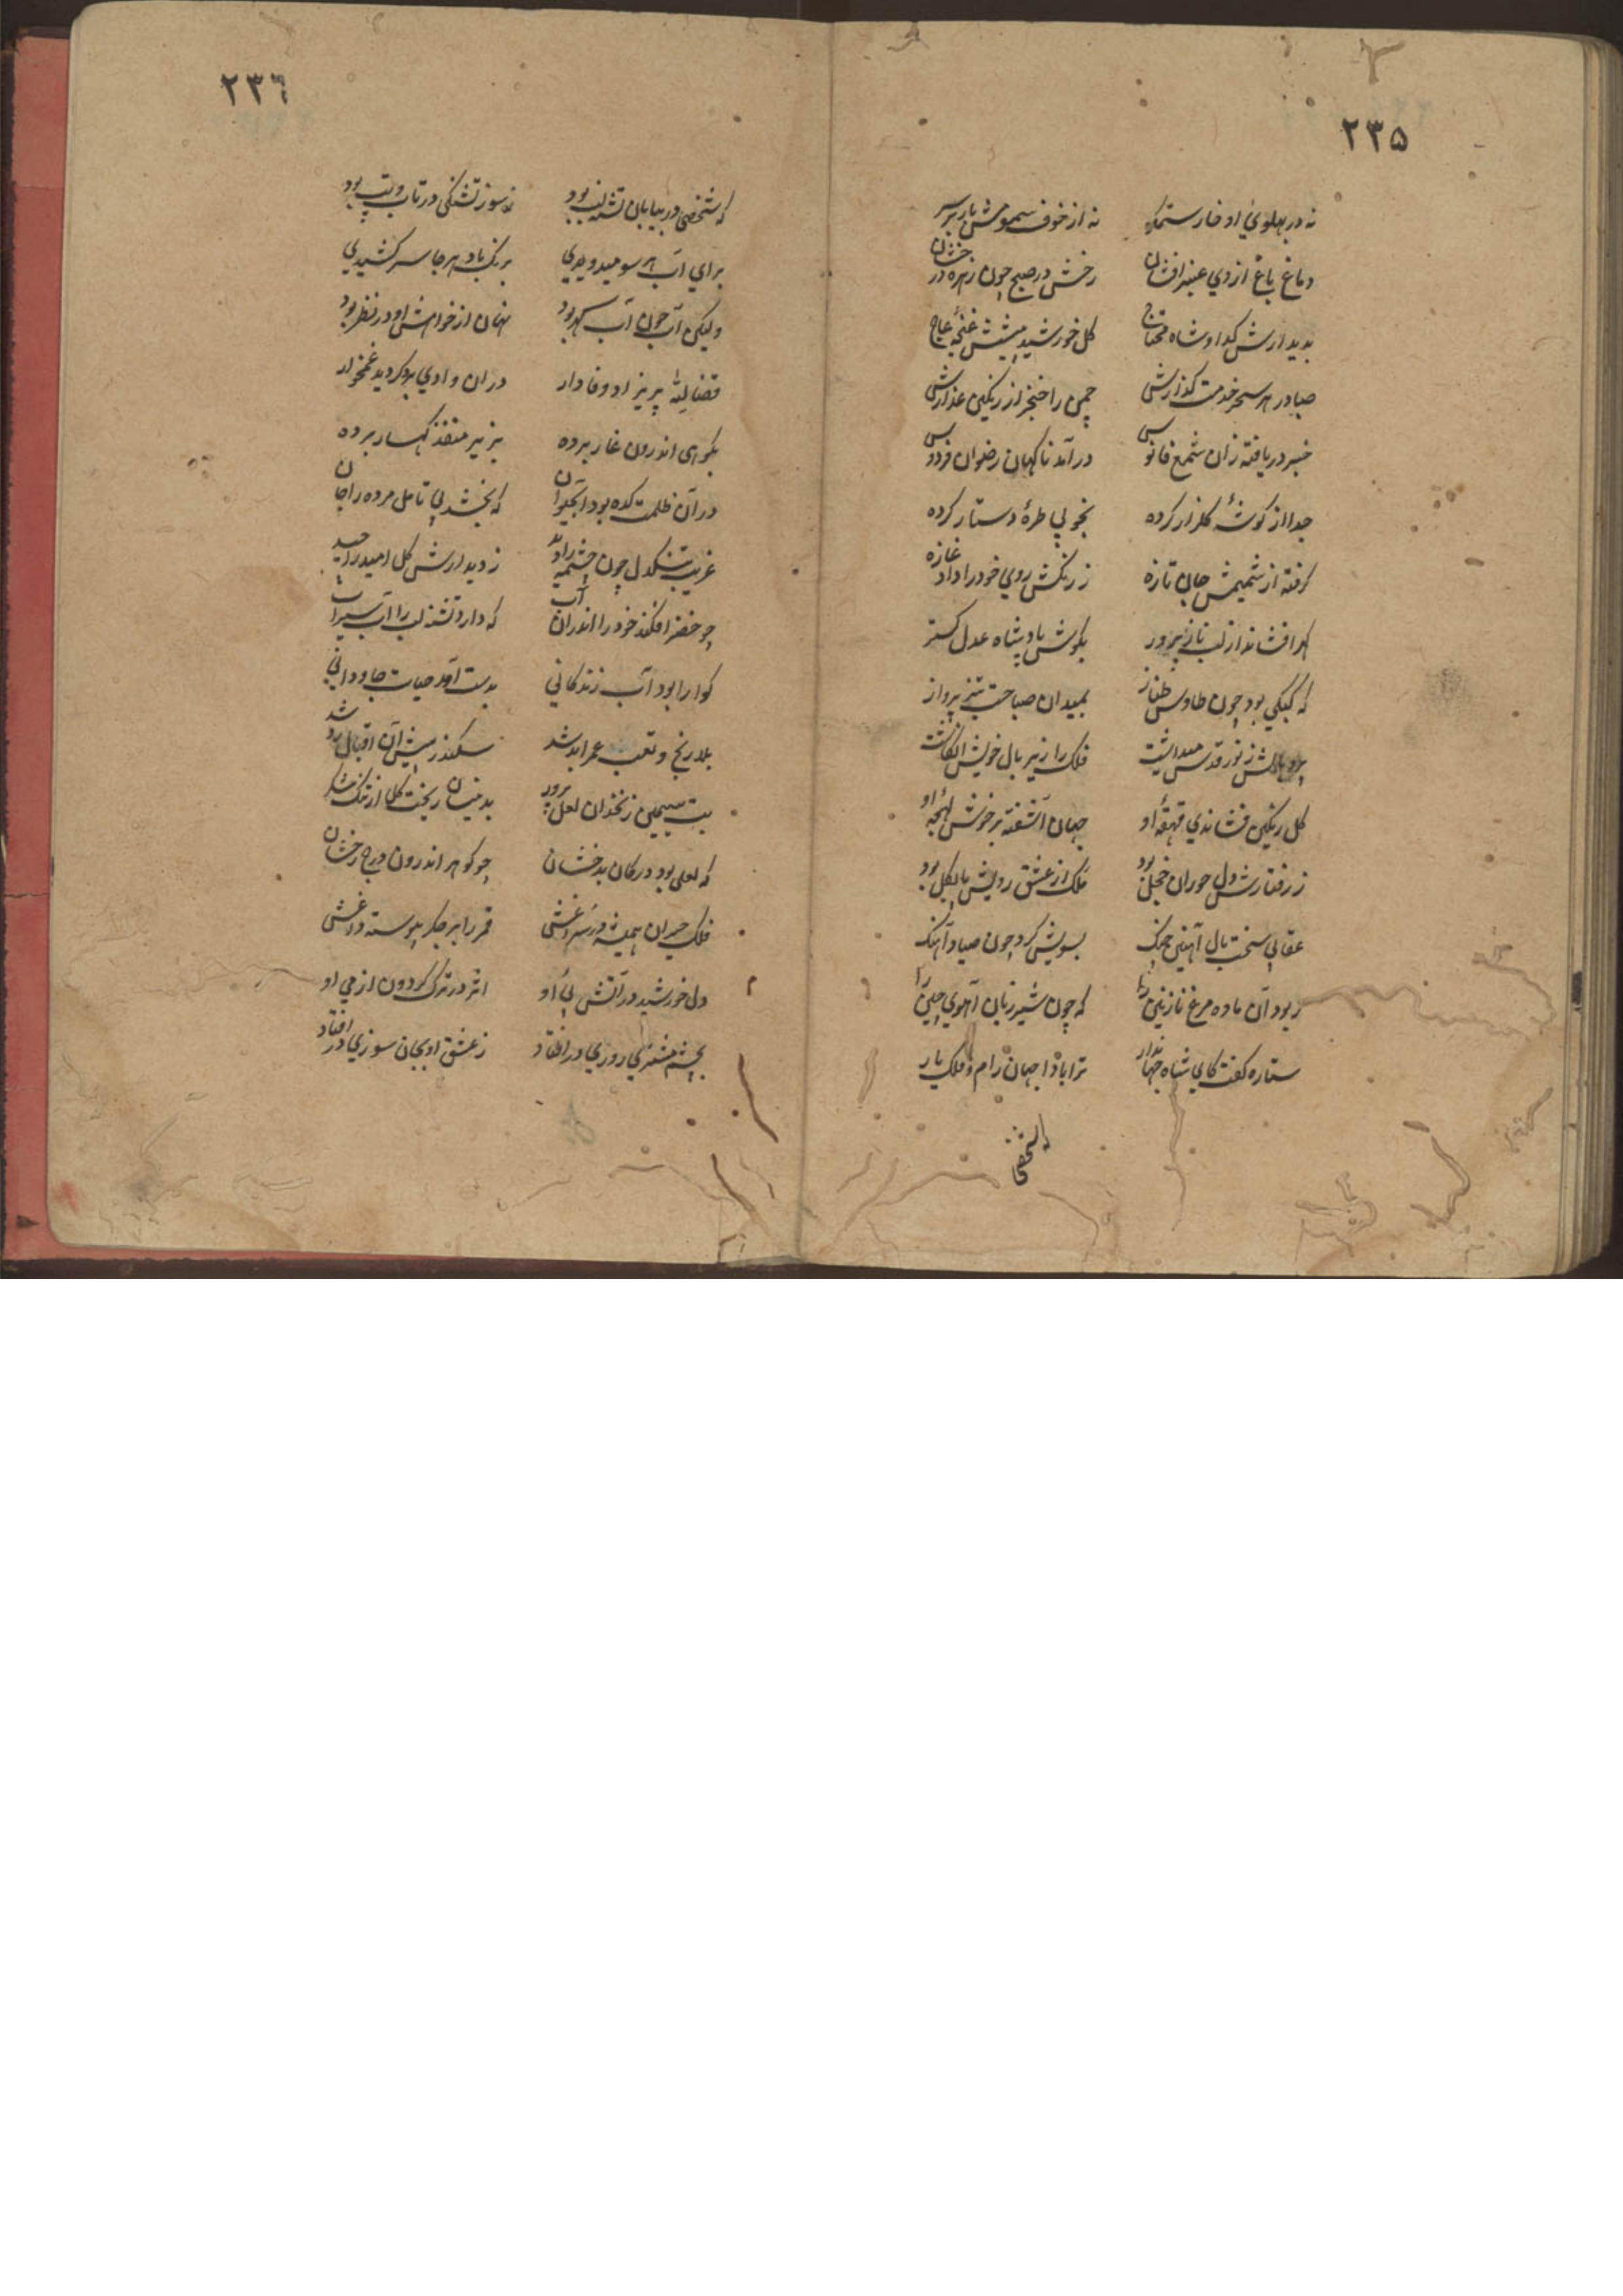 ٢٣۵
نه در پهلوی او خار ستمکر نه از خوف سمومش بار بر سر
دماغ باغ از وی عنبرافشان رخش در صبح چون زهره درخشان
بدیدارش کدا و شاه محتاج کل خورشید پیشش غنچهٔ عاج
صبا در هر سحر خدمت کذارش چمن را خنجر از رنکین عذارش
خبر دریافته زان شمع فانوس در آمد ناکهان رضوان فردوس
جدا از کوشهٔ کلزار کرده بخوبی طرهٔ دستار کرده
کرفته از شمیمش جان تازه ز رنکش روی خود را داد غازه
کهر افشاند از لب نازپرور بکوش پادشاه عدل کستر
که کبکی بود چون طاوس طناز بمیدان صباحت تیز پرواز
ز نور قدس میداشت فلک را زیر بال خویش انکاشت
کل رنکین فشاندی قهقهٔ او جهان آشفته بر خوش لهجهٔ او
ز رفتارش دل حوران خجل بود ملک از عشق رویش پابکل بود
عقابی سخت بال آهنین چنک بسویش کرد چون صیاد آهنک
ربود آن ماده مرغ نازنین را که چون شیر ژیان آهوی چین را
ستاره کفت کای شاه جهاندار ترا بادا جهان رام و فلک یار
که شخصی
٢٣٦
که شخصی در بیابان تشنه لب بود ز سوز تشنکی در تاب و تب بود
برای آب هر سو میدویدی برنک باد هر جا سر کشیدی
ولیکن آب چون آب کهر بود نهان از خواهش او در نظر بود
قضا لله پریزاد وفادار در ان وادی برو کردید غمخوار
بکوهی اندرون غار برده بزیر منفذ کهسار برده
در آن ظلمت کده بود آبحیوان که بخشد بی تامل مرده را جان
غریب تنکدل چون چشمه را دید ز دیدارش کل امید را چید
چو خضر افکند خود را اندران آب که دارد تشنه لب را آب سیراب
کوارا بود آب زندکانی بدست آمد حیات جاودانی
بلا رنج و تعب عمر ابد شد سکندر پیش آن اقبال رد شد
بت سیمین زنخدان لعل پرور بدینسان ریخت کل از تنک شکر
که لعلی بود در کان بدخشان چو کوهر اندرون درج رخشان
فلک حیران همیشه در سراغش قمر را بر جکر پیوسته داغش
دل خورشید در آتش پی او اثر در ترک کردون از می او
بچشم مشتری روزی در افتاد ز عشق او بجان سوزی در افتاد